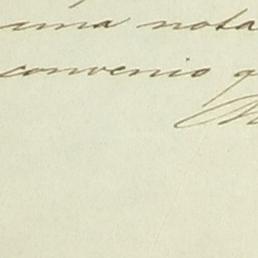 una nota
convenio q